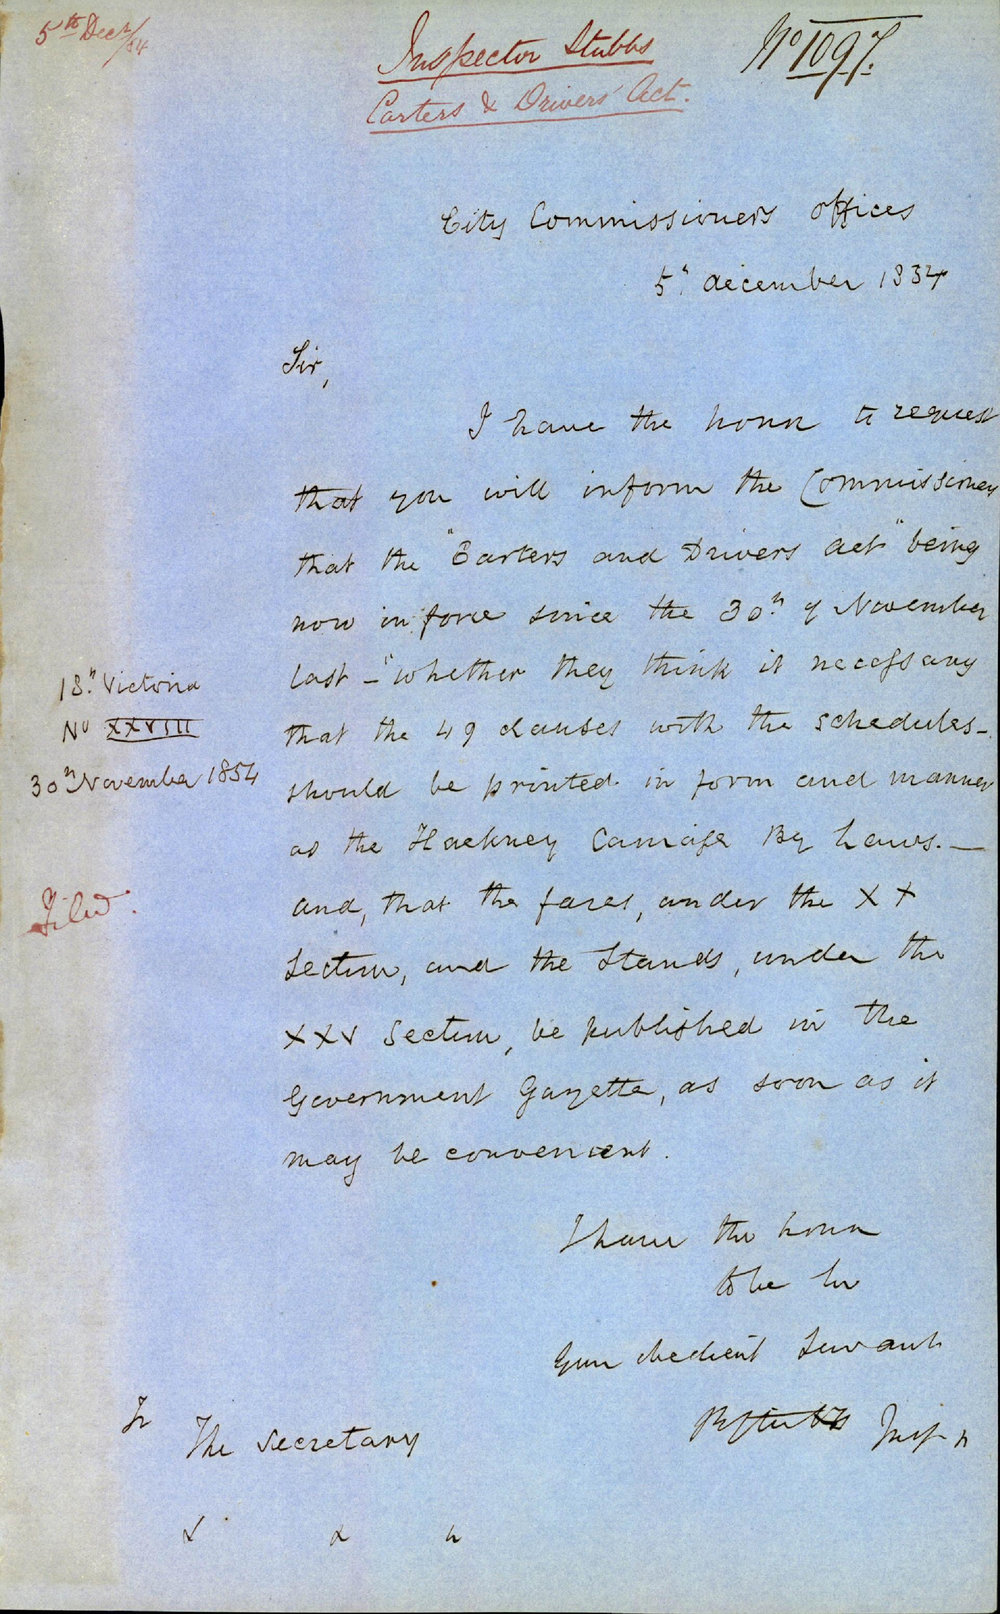 5th Decr/54
Inspector Stubbs
No 1097.
Carters & Drivers' Act.
City Commissioners offices
5h december 1854
Sir,
I have the honor to request
that you will inform the Commissioners
that the "Carters and Drivers act" being
now in force since the 30h of November
last - "whether they think it necessary
that the 49 clauses with the schedules -
should be printed in form and manner
as the Hackney Carriage By Laws. —
and, that the fares, under the XX
Section, and the Stands, under the
XXV Section, be published in the
Government Gazette, as soon as it
may be convenient.
18h Victoria
No XXVIII
30h November 1854
Filed.
I have the honor
to be Sir
Your obedient Servant
Stubbs Inspr
To
The Secretary